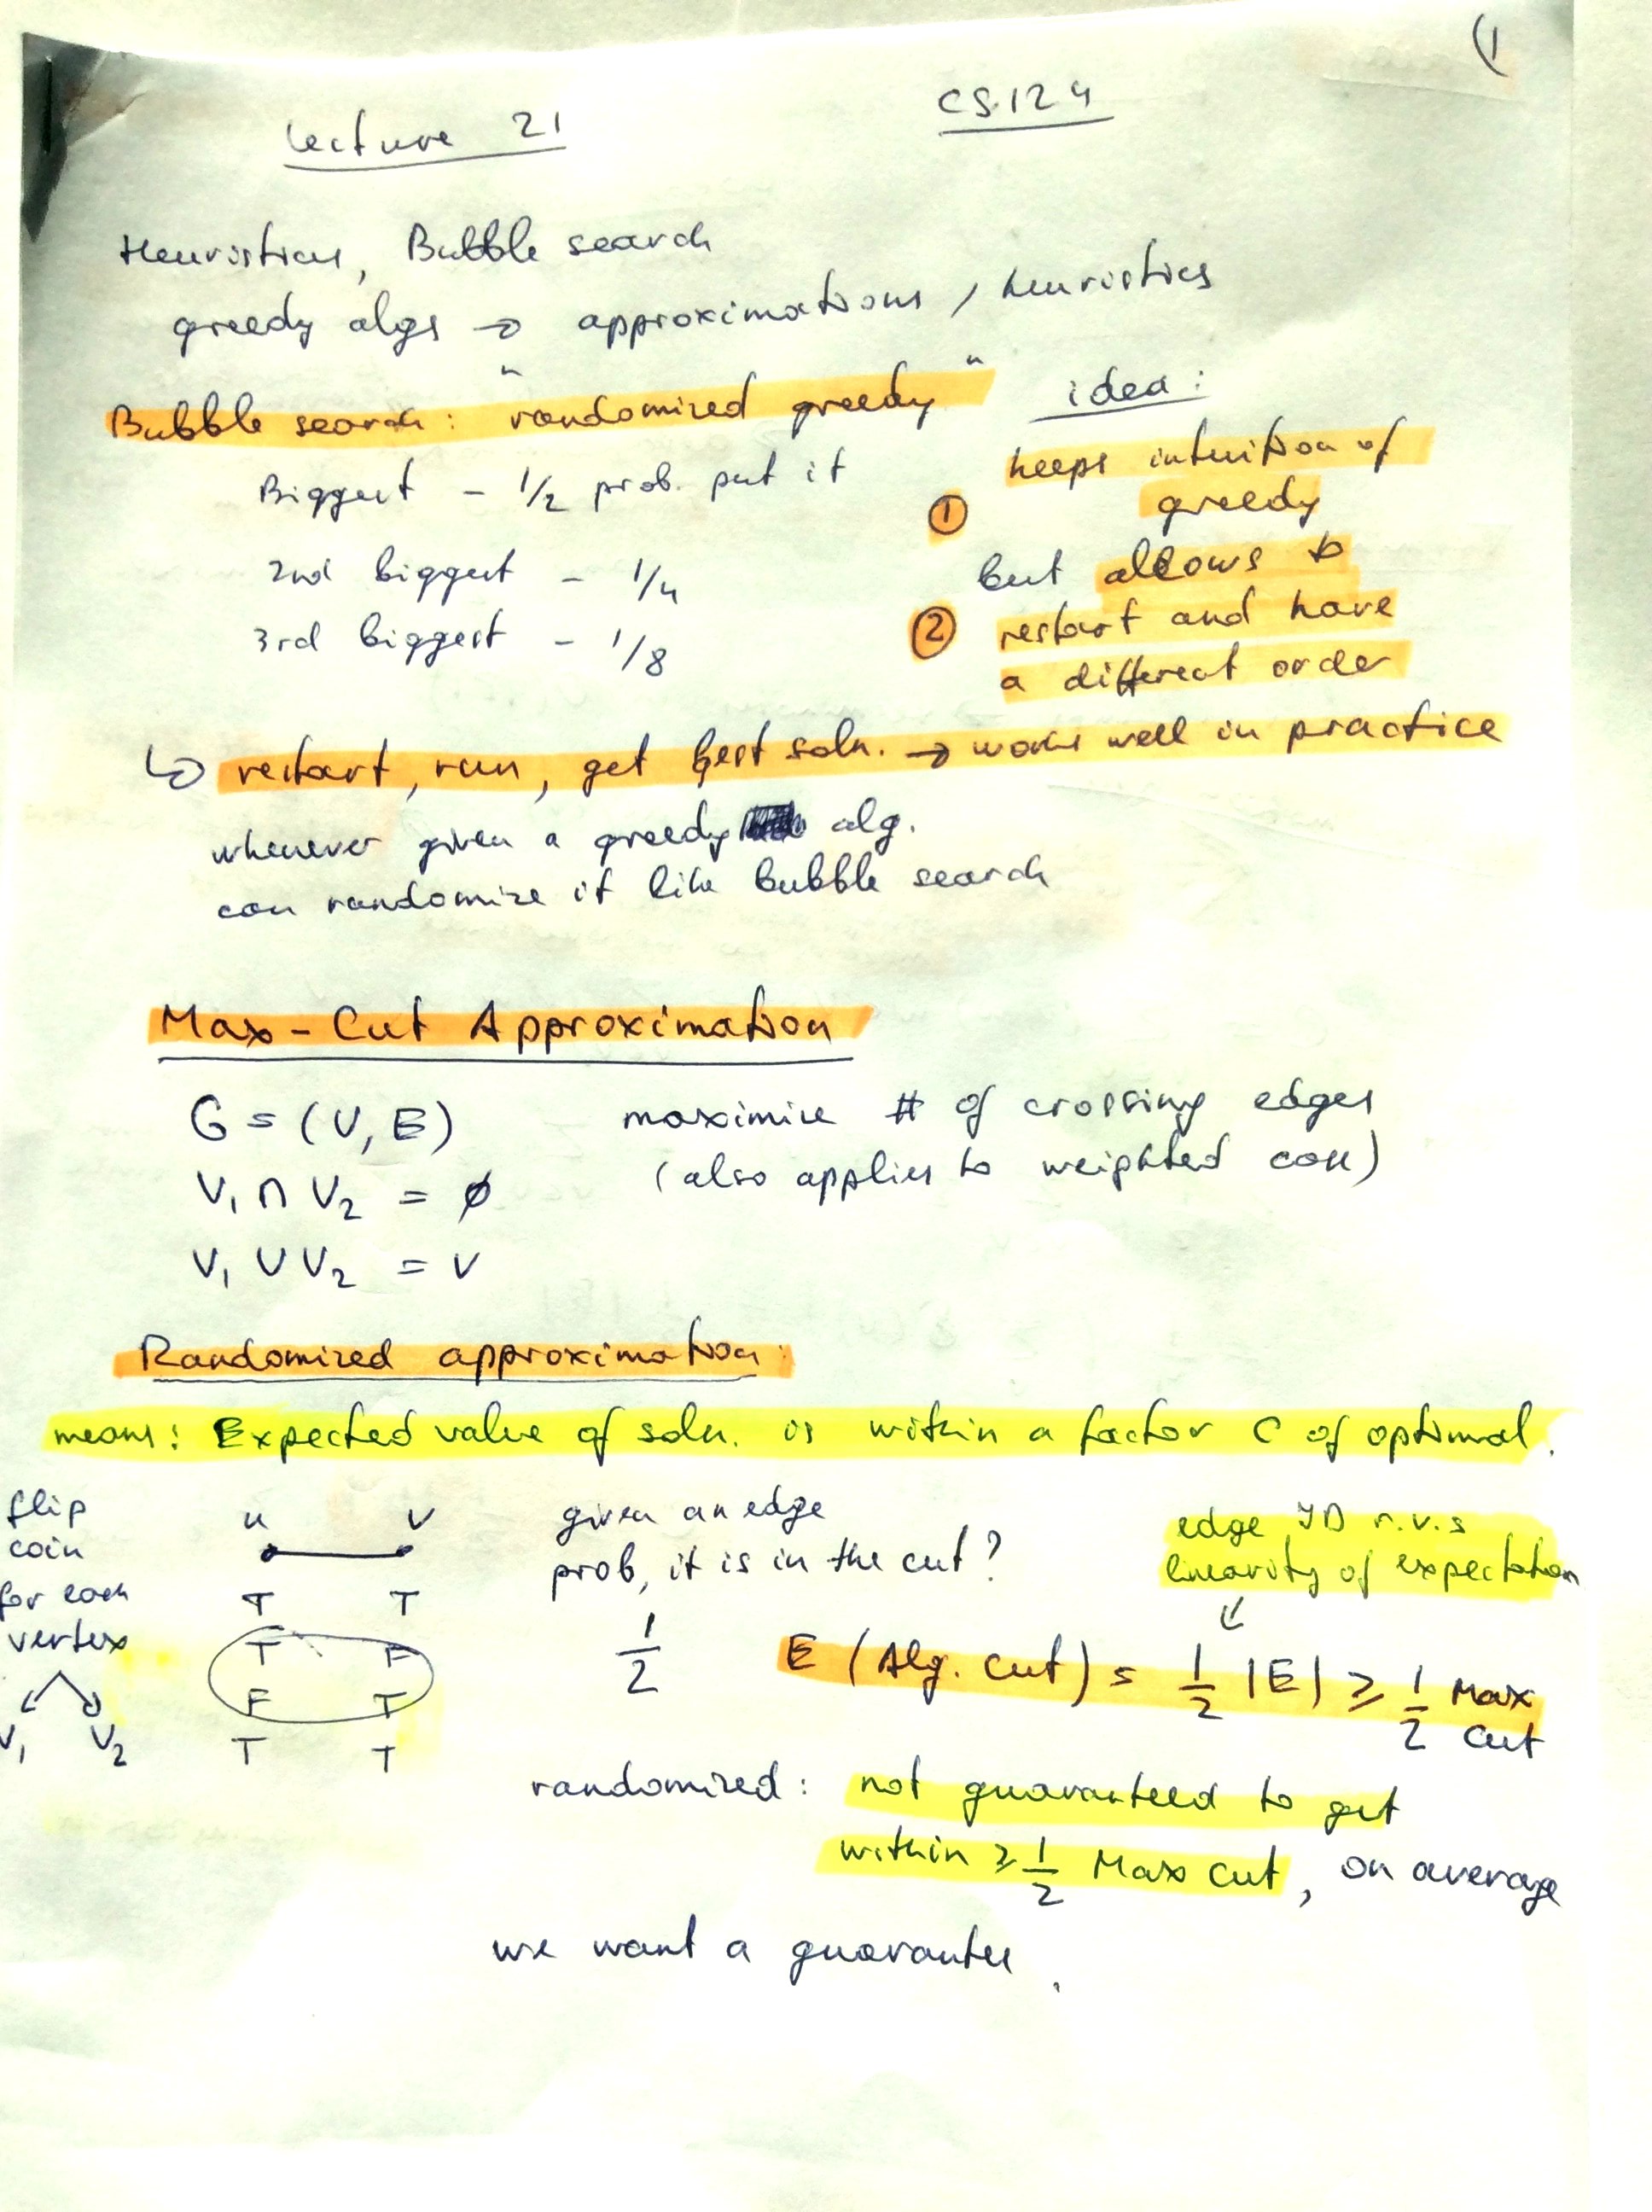 (1
Lecture 21
CS124
Heuristics, Bubble search
greedy algs → approximations, heuristics
Bubble search: "randomized greedy"
Biggest - 1/2 prob. put it
2nd biggest - 1/4
3rd biggest - 1/8
idea:
① keeps intuition of
greedy
but allows to
② restart and have
a different order
↳ restart, run, get best soln. → works well in practice
whenever given a greedy alg.
can randomize it like bubble search
Max-Cut Approximation
G = (V, E)
V₁ ∩ V₂ = ∅
V₁ ∪ V₂ = V
maximize # of crossing edges
(also applies to weighted case)
Randomized approximation:
means: Expected value of soln. is within a factor C of optimal.
flip
coin
for each
vertex
V₁ V₂
u v
T T
T F
F T
T T
given an edge
prob, it is in the cut?
1/2
edge ID r.v.s
linearity of expectation
↙
E (Alg. cut) = 1/2 |E| ≥ 1/2 Max
Cut
randomized: not guaranteed to get
within ≥ 1/2 Max Cut, on average
we want a guarantee.